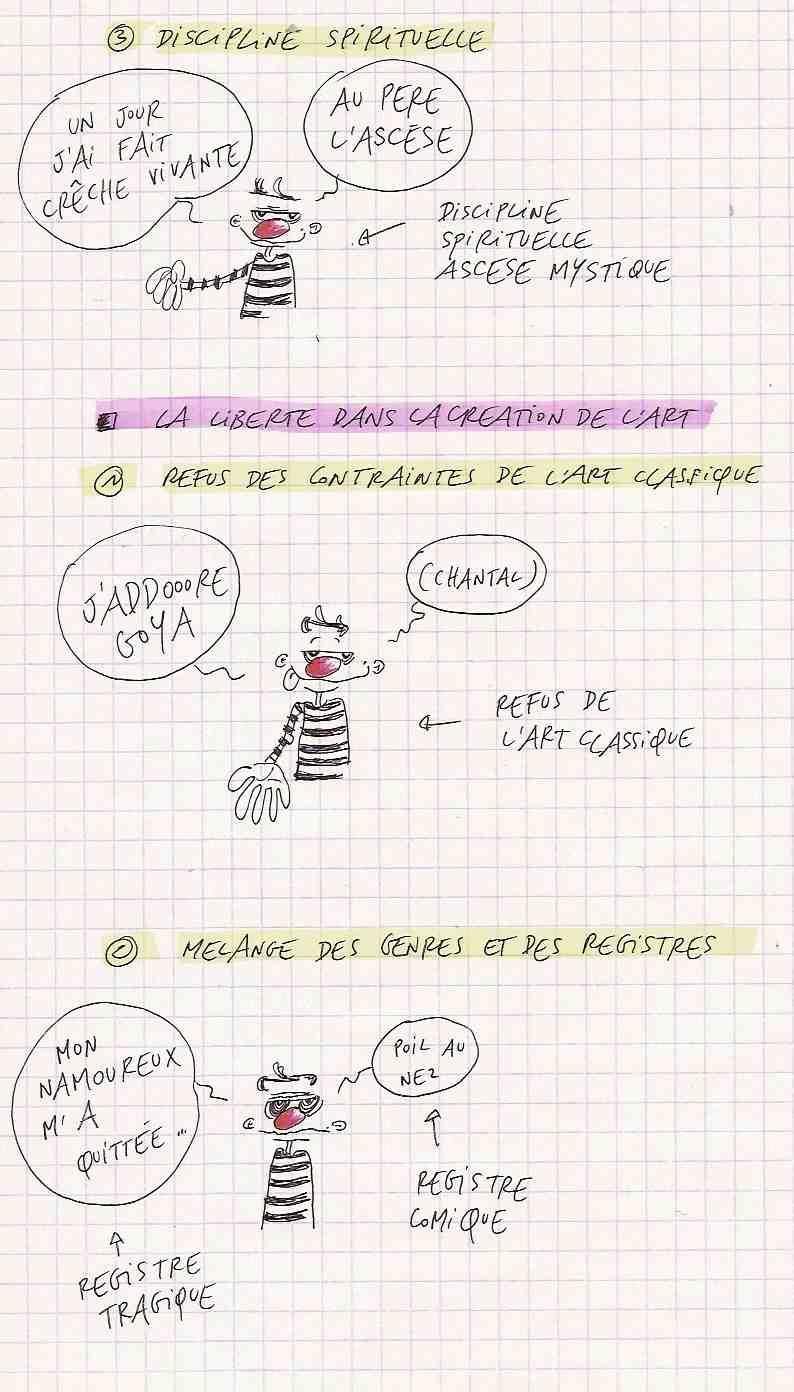 ③ DISCIPLINE SPIRITUELLE
UN JOUR
J'AI FAIT
CRÊCHE VIVANTE
AU PERE
L'ASCÈSE
DISCIPLINE
SPIRITUELLE
ASCESE MYSTIQUE
LA LIBERTE DANS LA CREATION DE L'ART
① REFUS DES CONTRAINTES DE L'ART CLASSIQUE
J'ADDOOORE
GOYA
(CHANTAL)
REFUS DE
L'ART CLASSIQUE
② MELANGE DES GENRES ET DES REGISTRES
MON
NAMOUREUX
M'A
QUITTÉE...
POIL AU
NEZ
REGISTRE
COMIQUE
REGISTRE
TRAGIQUE